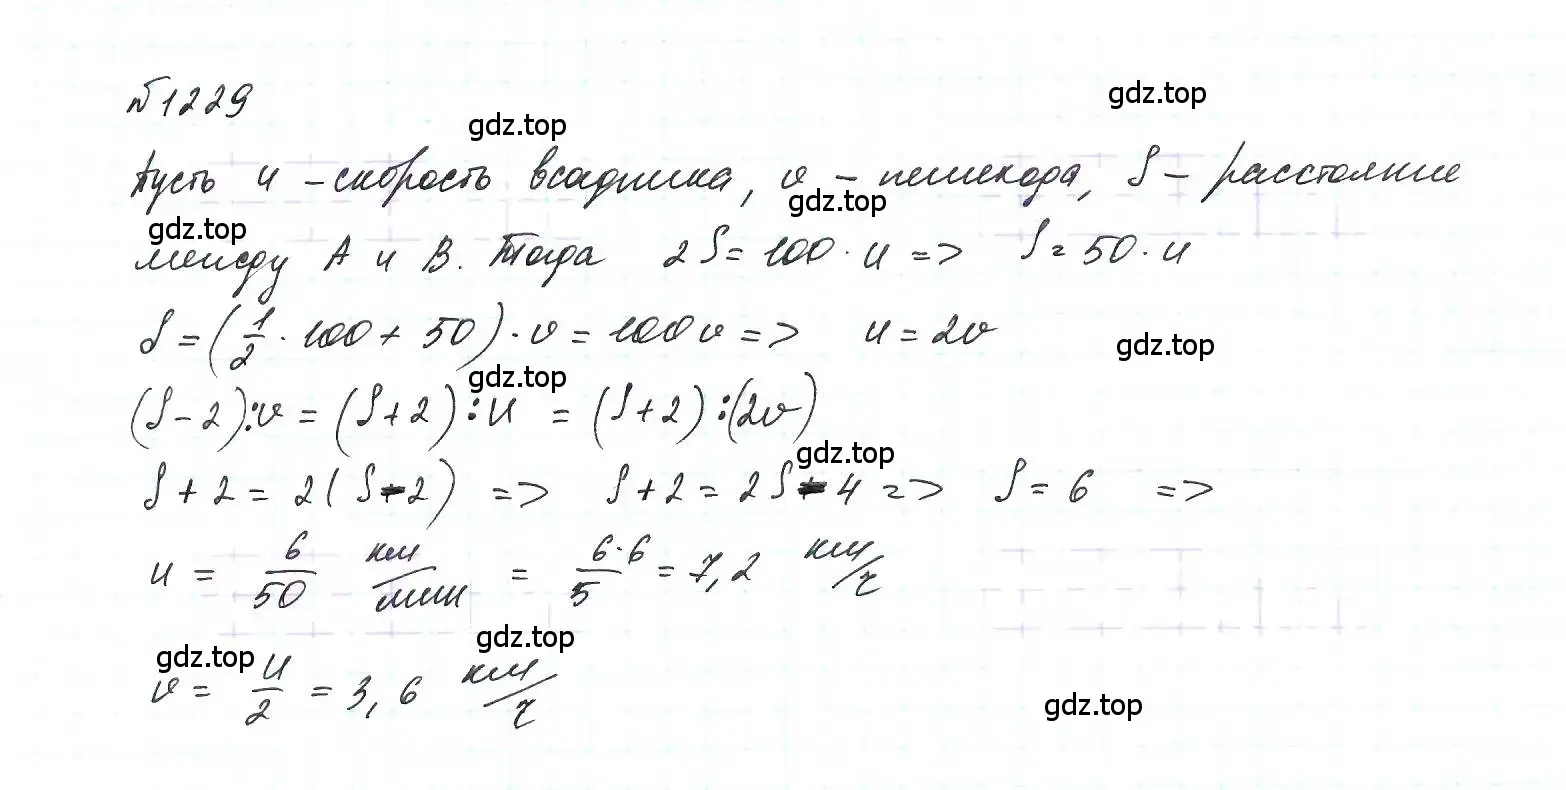 №1229
gdz.top
gdz.top
Пусть u - скорость всадника, v - пешехода, S - расстояние
gdz.top
gdz.top
между A и B. Тогда 2S = 100 · u => S = 50 · u
S = (1/2 · 100 + 50) · v = 100v => u = 2v
gdz.top
gdz.top
(S - 2):v = (S + 2):u = (S + 2):(2v)
gdz.top
S + 2 = 2(S - 2) => S + 2 = 2S - 4 => S = 6 =>
u = 6/50 км/мин = 6·6/5 = 7,2 км/ч
gdz.top
gdz.top
v = u/2 = 3,6 км/ч
gdz.top